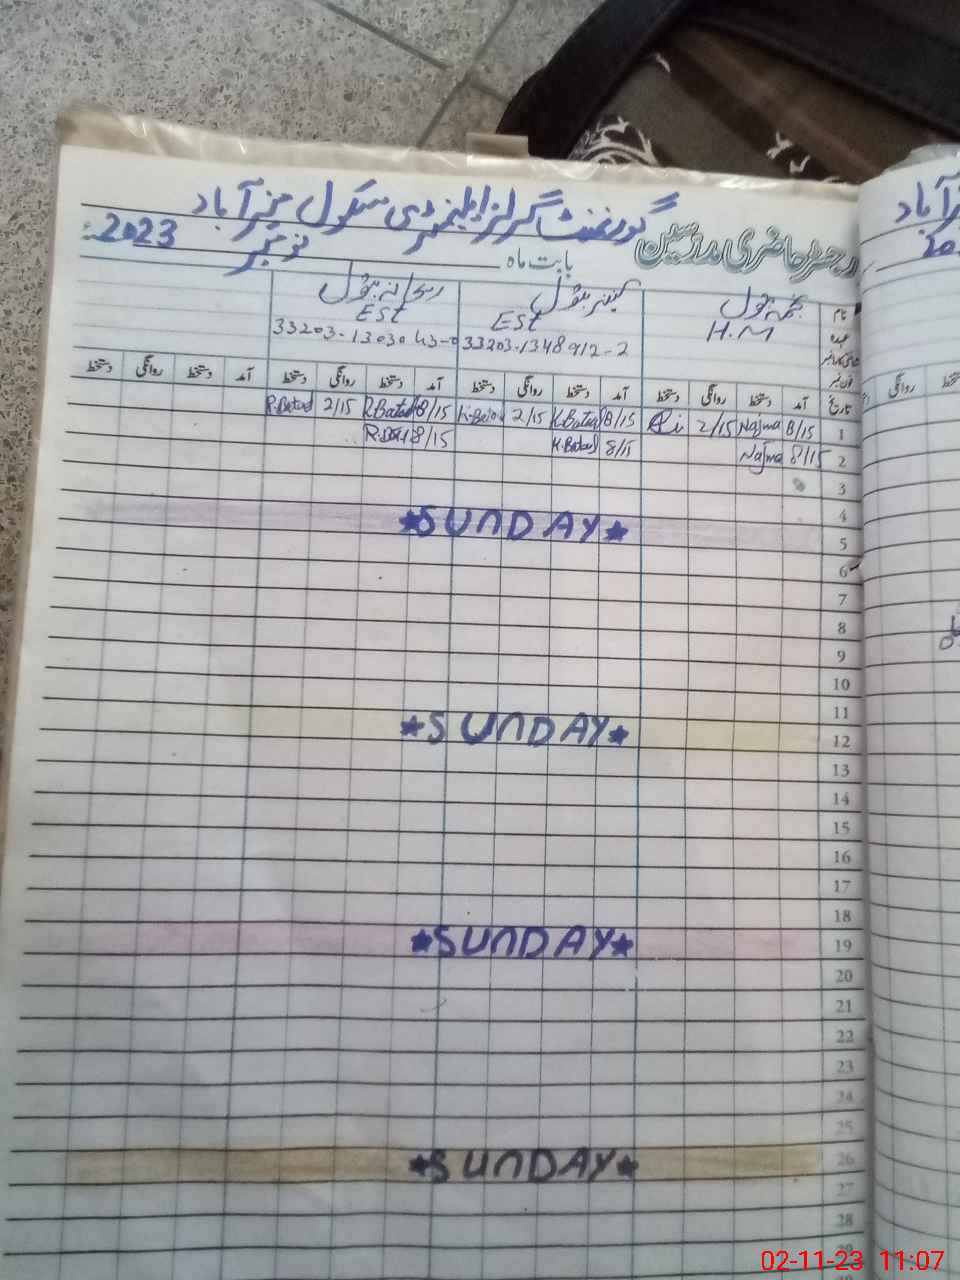 گورنمنٹ گرلز ایلیمنٹری سکول
رجسٹر حاضری مدرسین بابت ماہ نومبر 2023ء
نام نجمہ بتول کنیز بتول ریحانہ بتول
عہدہ H.M EST EST
33203-1348912-2 33203-1303043-0
تاریخ آمد دستخط روانگی دستخط آمد دستخط روانگی دستخط آمد دستخط روانگی دستخط آمد دستخط روانگی دستخط
1 8/15 Najma 2/15 8/15 K.Batul 2/15 8/15 R.Batul 2/15 R.Batul
2 8/15 Najma 8/15 K.Batul 8/15
3
4
5 ★SUNDAY★
6
7
8
9
10
11
12 ★SUNDAY★
13
14
15
16
17
18
19 ★SUNDAY★
20
21
22
23
24
25
26 ★SUNDAY★
27
28
29
02-11-23 11:07